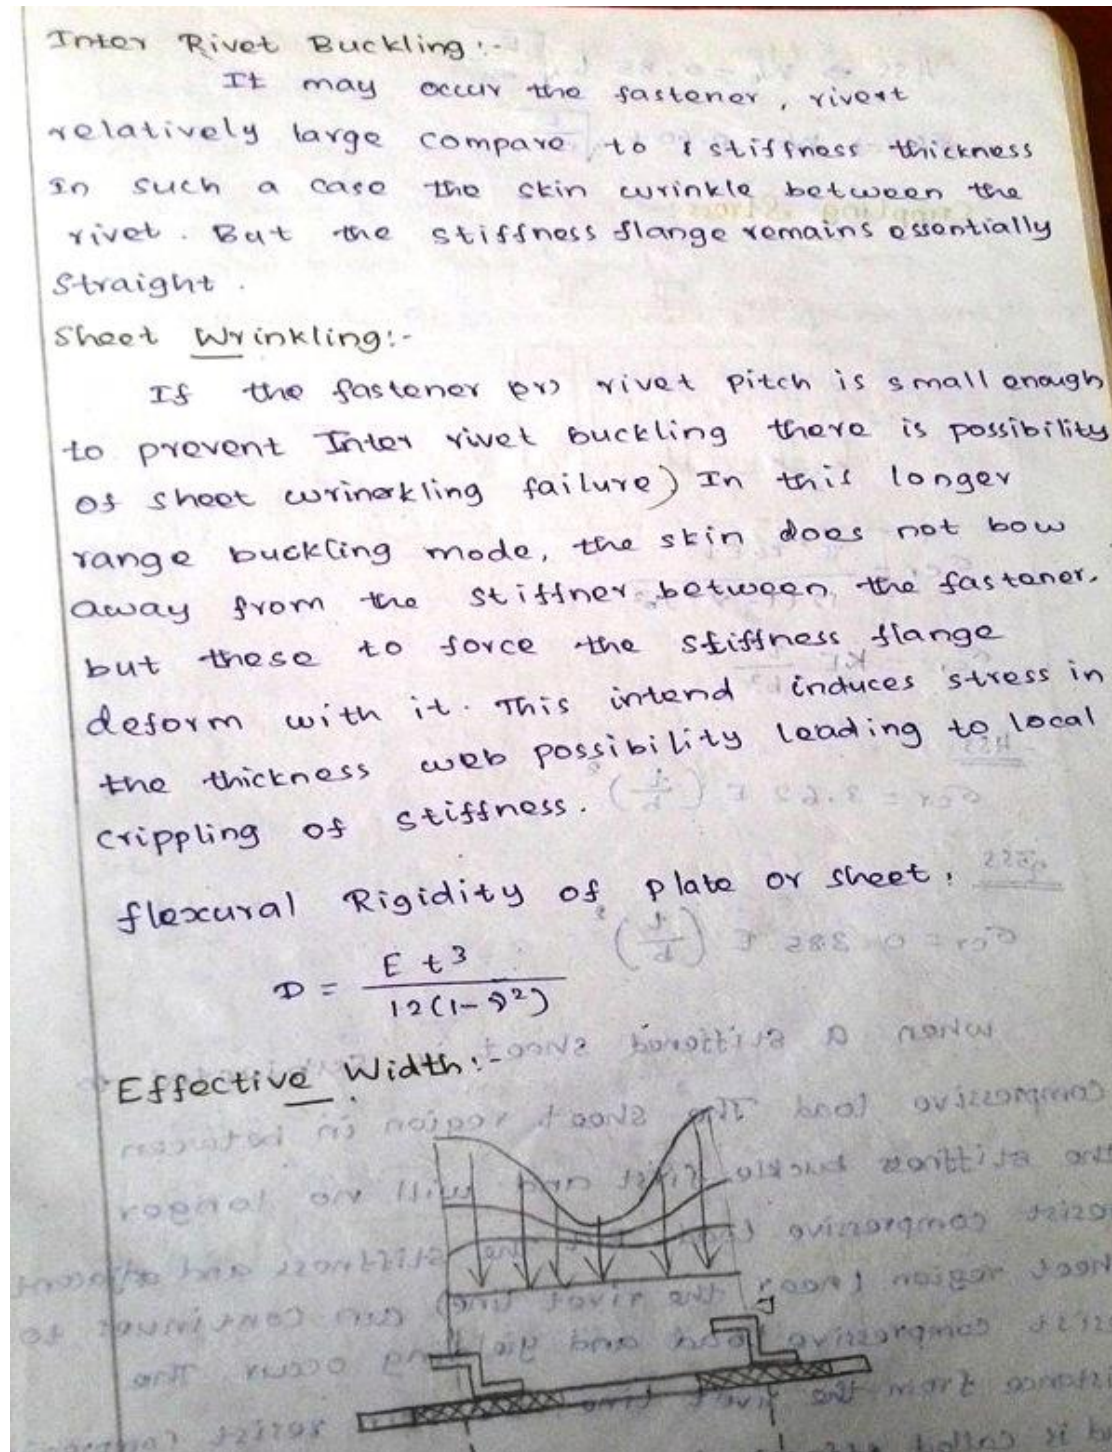 Inter Rivet Buckling :-
It may occur the fastener, rivert
relatively large compare to stiffness thickness
In such a case the skin wrinkle between the
rivet. But the stiffness flange remains essentially
straight.
Sheet Wrinkling:-
If the fastener (or) rivet pitch is small enough
to prevent Inter rivet buckling there is possibility
of sheet wrinerkling failure) In this longer
range buckling mode, the skin does not bow
away from the stiffner between the fastener.
but these to force the stiffness flange
deform with it. This intend induces stress in
the thickness web possibility leading to local
crippling of stiffness.
flexural Rigidity of plate or sheet:
D = E t³ / 12(1-ν²)
Effective Width:-